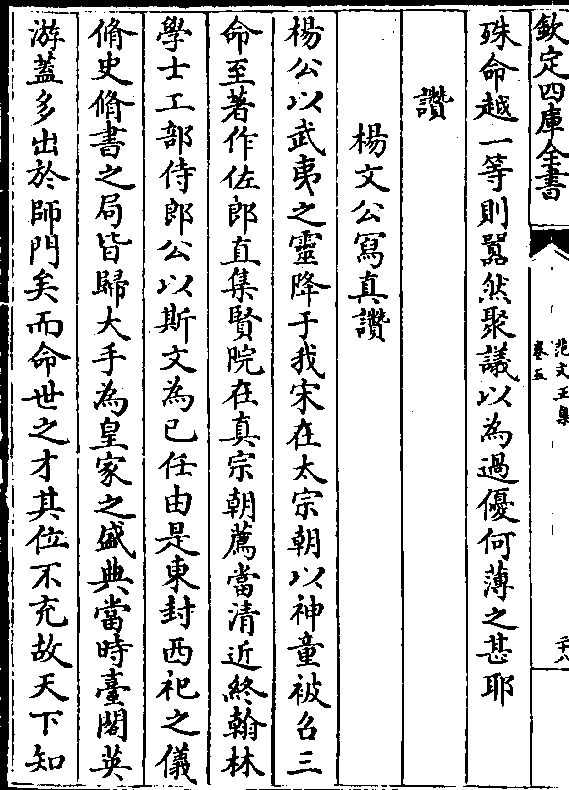 欽定四庫全書
范文正集
卷五
二十八
殊命越一等則囂然聚議以為過優何薄之甚耶
讚
楊文公寫真讚
楊公以武夷之靈降于我宋在太宗朝以神童被召三
命至著作佐郎直集賢院在真宗朝薦當清近終翰林
學士工部侍郎公以斯文為已任由是東封西祀之儀
脩史脩書之局皆歸大手為皇家之盛典當時臺閣英
游蓋多出於師門矣而命世之才其位不充故天下知